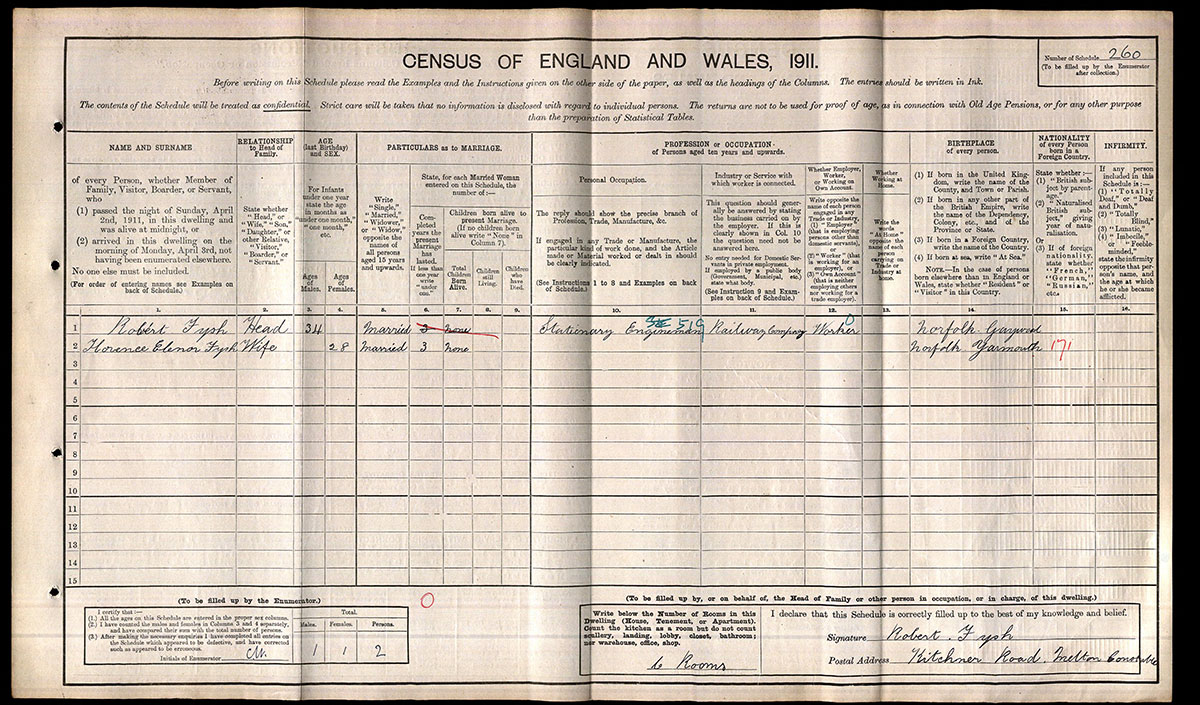 CENSUS OF ENGLAND AND WALES, 1911.
Number of Schedule 260
(To be filled up by the Enumerator
after collection.)
Before writing on this Schedule please read the Examples and the Instructions given on the other side of the paper, as well as the headings of the Columns. The entries should be written in Ink.
The contents of the Schedule will be treated as confidential. Strict care will be taken that no information is disclosed with regard to individual persons. The returns are not to be used for proof of age, as in connection with Old Age Pensions, or for any other purpose
than the preparation of Statistical Tables.
NAME AND SURNAME
of every Person, whether Member of
Family, Visitor, Boarder, or Servant,
who
(1) passed the night of Sunday, April
2nd, 1911, in this dwelling and
was alive at midnight, or
(2) arrived in this dwelling on the
morning of Monday, April 3rd, not
having been enumerated elsewhere.
No one else must be included.
(For order of entering names see Examples on
back of Schedule.)
1.
RELATIONSHIP
to Head of
Family.
State whether
"Head," or
"Wife," "Son,"
"Daughter," or
other Relative,
"Visitor,"
"Boarder," or
"Servant."
2.
AGE
(last Birthday)
and SEX.
For Infants
under one year
state the age
in months as
"under one month,"
"one month,"
etc.
Ages
of
Males.
3.
Ages
of
Females.
4.
PARTICULARS as to MARRIAGE.
Write
"Single,"
"Married,"
"Widower,"
or "Widow,"
opposite the
names of
all persons
aged 15 years
and upwards.
5.
State, for each Married Woman
entered on this Schedule, the
number of:—
Com-
pleted
years the
present
Marriage
has
lasted.
If less than
one year
write
"under
one."
6.
Children born alive to
present Marriage.
(If no children born
alive write "None" in
Column 7).
Total
Children
Born
Alive.
7.
Children
still
Living.
8.
Children
who
have
Died.
9.
PROFESSION or OCCUPATION
of Persons aged ten years and upwards.
Personal Occupation.
The reply should show the precise branch of
Profession, Trade, Manufacture, &c.
If engaged in any Trade or Manufacture, the
particular kind of work done, and the Article
made or Material worked or dealt in should
be clearly indicated.
(See Instructions 1 to 8 and Examples on back
of Schedule.)
10.
Industry or Service with
which worker is connected.
This question should gener-
ally be answered by stating
the business carried on by
the employer. If this is
clearly shown in Col. 10
the question need not be
answered here.
No entry needed for Domestic Ser-
vants in private employment.
If employed by a public body
(Government, Municipal, etc.)
state what body.
(See Instruction 9 and Exam-
ples on back of Schedule.)
11.
Whether Employer,
Worker,
or Working on
Own Account.
Write opposite the
name of each person
engaged in any
Trade or Industry,
(1) "Employer"
(that is employing
persons other than
domestic servants),
or
(2) "Worker" (that
is working for an
employer), or
(3) "Own Account"
(that is neither
employing others
nor working for a
trade employer).
12.
Whether
Working at
Home.
Write the
words
"At Home"
opposite the
name of each
person
carrying on
Trade or
Industry at
home.
13.
BIRTHPLACE
of every person.
(1) If born in the United King-
dom, write the name of the
County, and Town or Parish.
(2) If born in any other part of
the British Empire, write
the name of the Dependency,
Colony, etc., and of the
Province or State.
(3) If born in a Foreign Country,
write the name of the Country.
(4) If born at sea, write "At Sea."
NOTE.—In the case of persons
born elsewhere than in England or
Wales, state whether "Resident" or
"Visitor" in this Country.
14.
NATIONALITY
of every Person
born in a
Foreign Country.
State whether:—
(1) "British sub-
ject by parent-
age."
(2) "Naturalised
British sub-
ject," giving
year of natu-
ralisation.
Or
(3) If of foreign
nationality,
state whether
"French,"
"German,"
"Russian,"
etc.
15.
INFIRMITY.
If any person
included in this
Schedule is:—
(1) "Totally
Deaf," or "Deaf
and Dumb,"
(2) "Totally
Blind,"
(3) "Lunatic,"
(4) "Imbecile,"
or "Feeble-
minded,"
state the infirmity
opposite that per-
son's name, and
the age at which
he or she became
afflicted.
16.
1 Robert Fysh Head 34 Married 3 None Stationary Engineman 519 Railway Company Worker Norfolk Gaywood
2 Florence Elenor Fysh Wife 28 Married 3 None Norfolk Yarmouth 171
3
4
5
6
7
8
9
10
11
12
13
14
15
(To be filled up by the Enumerator.)
0
I certify that:—
(1.) All the ages on this Schedule are entered in the proper sex columns.
(2.) I have counted the males and females in Columns 3 and 4 separately,
and have compared their sum with the total number of persons.
(3.) After making the necessary enquiries I have completed all entries on
the Schedule which appeared to be defective, and have corrected
such as appeared to be erroneous.
Initials of Enumerator
Total.
Males. Females. Persons.
1 1 2
(To be filled up by, or on behalf of, the Head of Family or other person in occupation, or in charge, of this dwelling.)
Write below the Number of Rooms in this
Dwelling (House, Tenement, or Apartment).
Count the kitchen as a room but do not count
scullery, landing, lobby, closet, bathroom;
nor warehouse, office, shop.
6 Rooms
I declare that this Schedule is correctly filled up to the best of my knowledge and belief.
Signature Robert Fysh
Postal Address Kitchner Road, Melton Constable